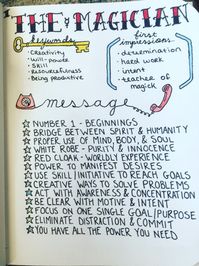 THE MAGICIAN
keywords
- Creativity
- Will-power
- Skill
- Resourcefulness
- Being productive
first
impressions
- determination
- hard work
- intent
- teacher of
magick
message
☆ NUMBER 1 - BEGINNINGS
☆ BRIDGE BETWEEN SPIRIT & HUMANITY
☆ PROPER USE OF MIND, BODY, & SOUL
☆ WHITE ROBE - PURITY & INNOCENCE
☆ RED CLOAK - WORLDLY EXPERIENCE
☆ POWER TO MANIFEST DESIRES
☆ USE SKILL/INITIATIVE TO REACH GOALS
☆ CREATIVE WAYS TO SOLVE PROBLEMS
☆ ACT WITH AWARENESS & CONCENTRATION
☆ BE CLEAR WITH MOTIVE & INTENT
☆ FOCUS ON ONE SINGLE GOAL/PURPOSE
☆ ELIMINATE DISTRACTION & COMMIT
☆ YOU HAVE ALL THE POWER YOU NEED